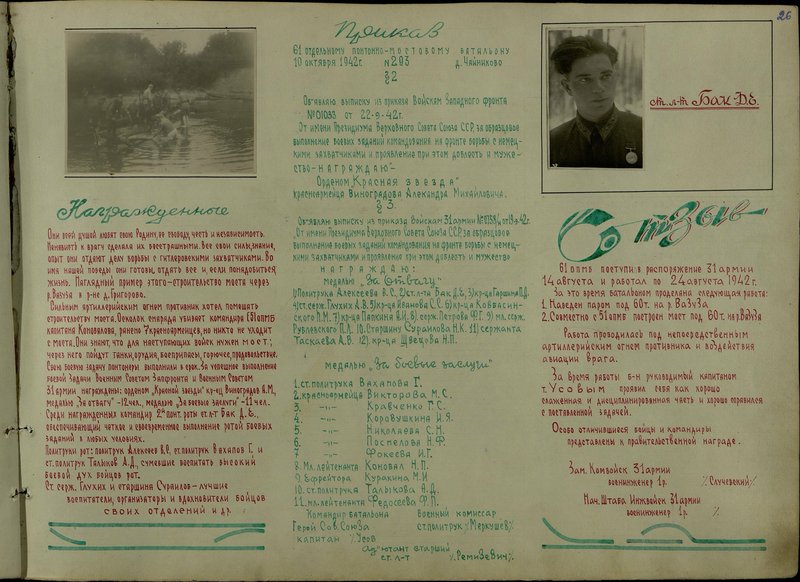 26
Приказ
61 отдельному понтонно-мостовому батальону
10 октября 1942г. N293 д. Чайниково
§2
Об'являю выписку из приказа Войскам Западного фронта
№01033 от 22-9-42г.
От имени Президиума Верховного Совета Союза ССР, за образцовое
выполнение боевых заданий командования на фронте борьбы с немец-
кими захватчиками и проявление при этом доблесть и муже-
ство - НАГРАЖДАЮ -
Орденом „Красная звезда"
красноармейца Виноградова Александра Михайловича.
§ 3.
Об'являю выписку из приказа Войскам 31 армии
От имени Президиума Верховного Совета Союза ССР, за образцовое
выполнение боевых заданий командования на фронте борьбы с немец-
кими захватчиками и проявление при этом доблесть и мужество
НАГРАЖДАЮ:
медалью „За Отвагу"
1) Политрука Алексеева В.С, 2) ст.л-та Бак Д.Е, 3) кр-ца Гаршина П.Д.
4) ст.серж. Глухих А.В. 5) кр-ца Иванова С.С. 6) кр-ца Ковбасин-
ского П.М. 7) кр-ца Папкина В.И. 8) серж. Петрова Ф.Г. 9) мл. серж.
Рублевского П.Л. 10. Старшину Сурайлова Н.К. 11) сержанта
Таскаева А.В. 12). кр-ца Швецова Н.П.
медалью „За боевые заслуги"
1. ст. политрука Вахапова Г.
2. красноармейца Викторова М.С.
3. -"- Кравченко Г.С.
4. -"- Коровушкина И.Я.
5. -"- Николаева С.Н.
6. -"- Поспелова Н.Ф.
7 -"- Фокеева И.Г.
8. Мл. лейтенанта Коновал Н.П.
9. Ефрейтора Куракина М.И
10. ст. политрука Талыкова А.Д.
11. мл. лейтенанта Федосеева Ф.П.
Командир батальона Военный комиссар
Герой Сов. Союза ст. политрук Меркушев
капитан Усов
Ад'ютант старший
ст. л-т Ремизевич
Награжденные
Они всей душой любят свою Родину, ее свободу, честь и независимость.
Ненависть к врагу сделала их бесстрашными. Все свои силы, знание,
опыт они отдают делу борьбы с гитлеровскими захватчиками. Во
имя нашей победы они готовы отдать все и, если понадобиться
жизнь. Наглядный пример этого - строительство моста через
р. Вазуза в р-не д. Григорово.
Сильным артиллерийским огнем противник хотел помешать
строительству моста. Осколок снаряда убивает командира
капитана Коновалова, ранено 7 красноармейцев, но никто не уходит
с моста. Они знают, что для наступающих войск нужен мост;
через него пойдут танки, орудия, боеприпасы, горючее, продовольствие.
Свою боевую задачу понтонеры выполнили в срок. За успешное выполнение
боевой задачи Военным Советом Запфронта и Военным Советом
31 армии награждены: орденом „Красной звезды" кр-ец Виноградов А.М.,
медалью „За отвагу" - 12 чел. медалью „За боевые заслуги" - 11 чел.
Среди награжденных командир 2ой понт. роты ст. л-т Бак Д.Е.,
обеспечивающий четкое и своевременное выполнение ротой боевых
заданий в любых условиях.
Политруки рот: политрук Алексеев В.С, ст. политрук Вахапов Г. и
ст. политрук Талыков А.Д., сумевшие воспитать высокий
боевой дух бойцов рот.
Ст. серж. Глухих и старшина Сурайлов - лучшие
воспитатели, организаторы и вдохновители бойцов
своих отделений и др.
ст. л-т Бак Д.Е.
Отзыв
61 опмб поступил в распоряжение 31 армии
14 августа и работал по 24 августа 1942г.
За это время батальоном проделана следующая работа:
1. Наведен паром под 60т. на р. Вазуза
2. Совместно с 51 опмб построен мост под 60т. на р. Вазуза
Работа проводилась под непосредственным
артиллерийским огнем противника и воздействия
авиации врага.
За время работы б-н руководимый капитаном
т. Усовым проявил себя как хорошо
слаженная и дисциплинированная часть и хорошо справился
с поставленной задачей.
Особо отличившиеся бойцы и командиры
представлены к правительственной награде.
Зам. Комвойск 31 армии
военинженер 1р. Случевский
Нач. Штаба Инжвойск 31 армии
военинженер 1р. %